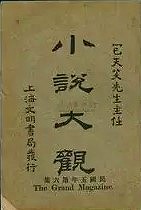 包天笑先生主任
小說大觀
上海文明書局發行
民國五年第六集
The Grand Magazine